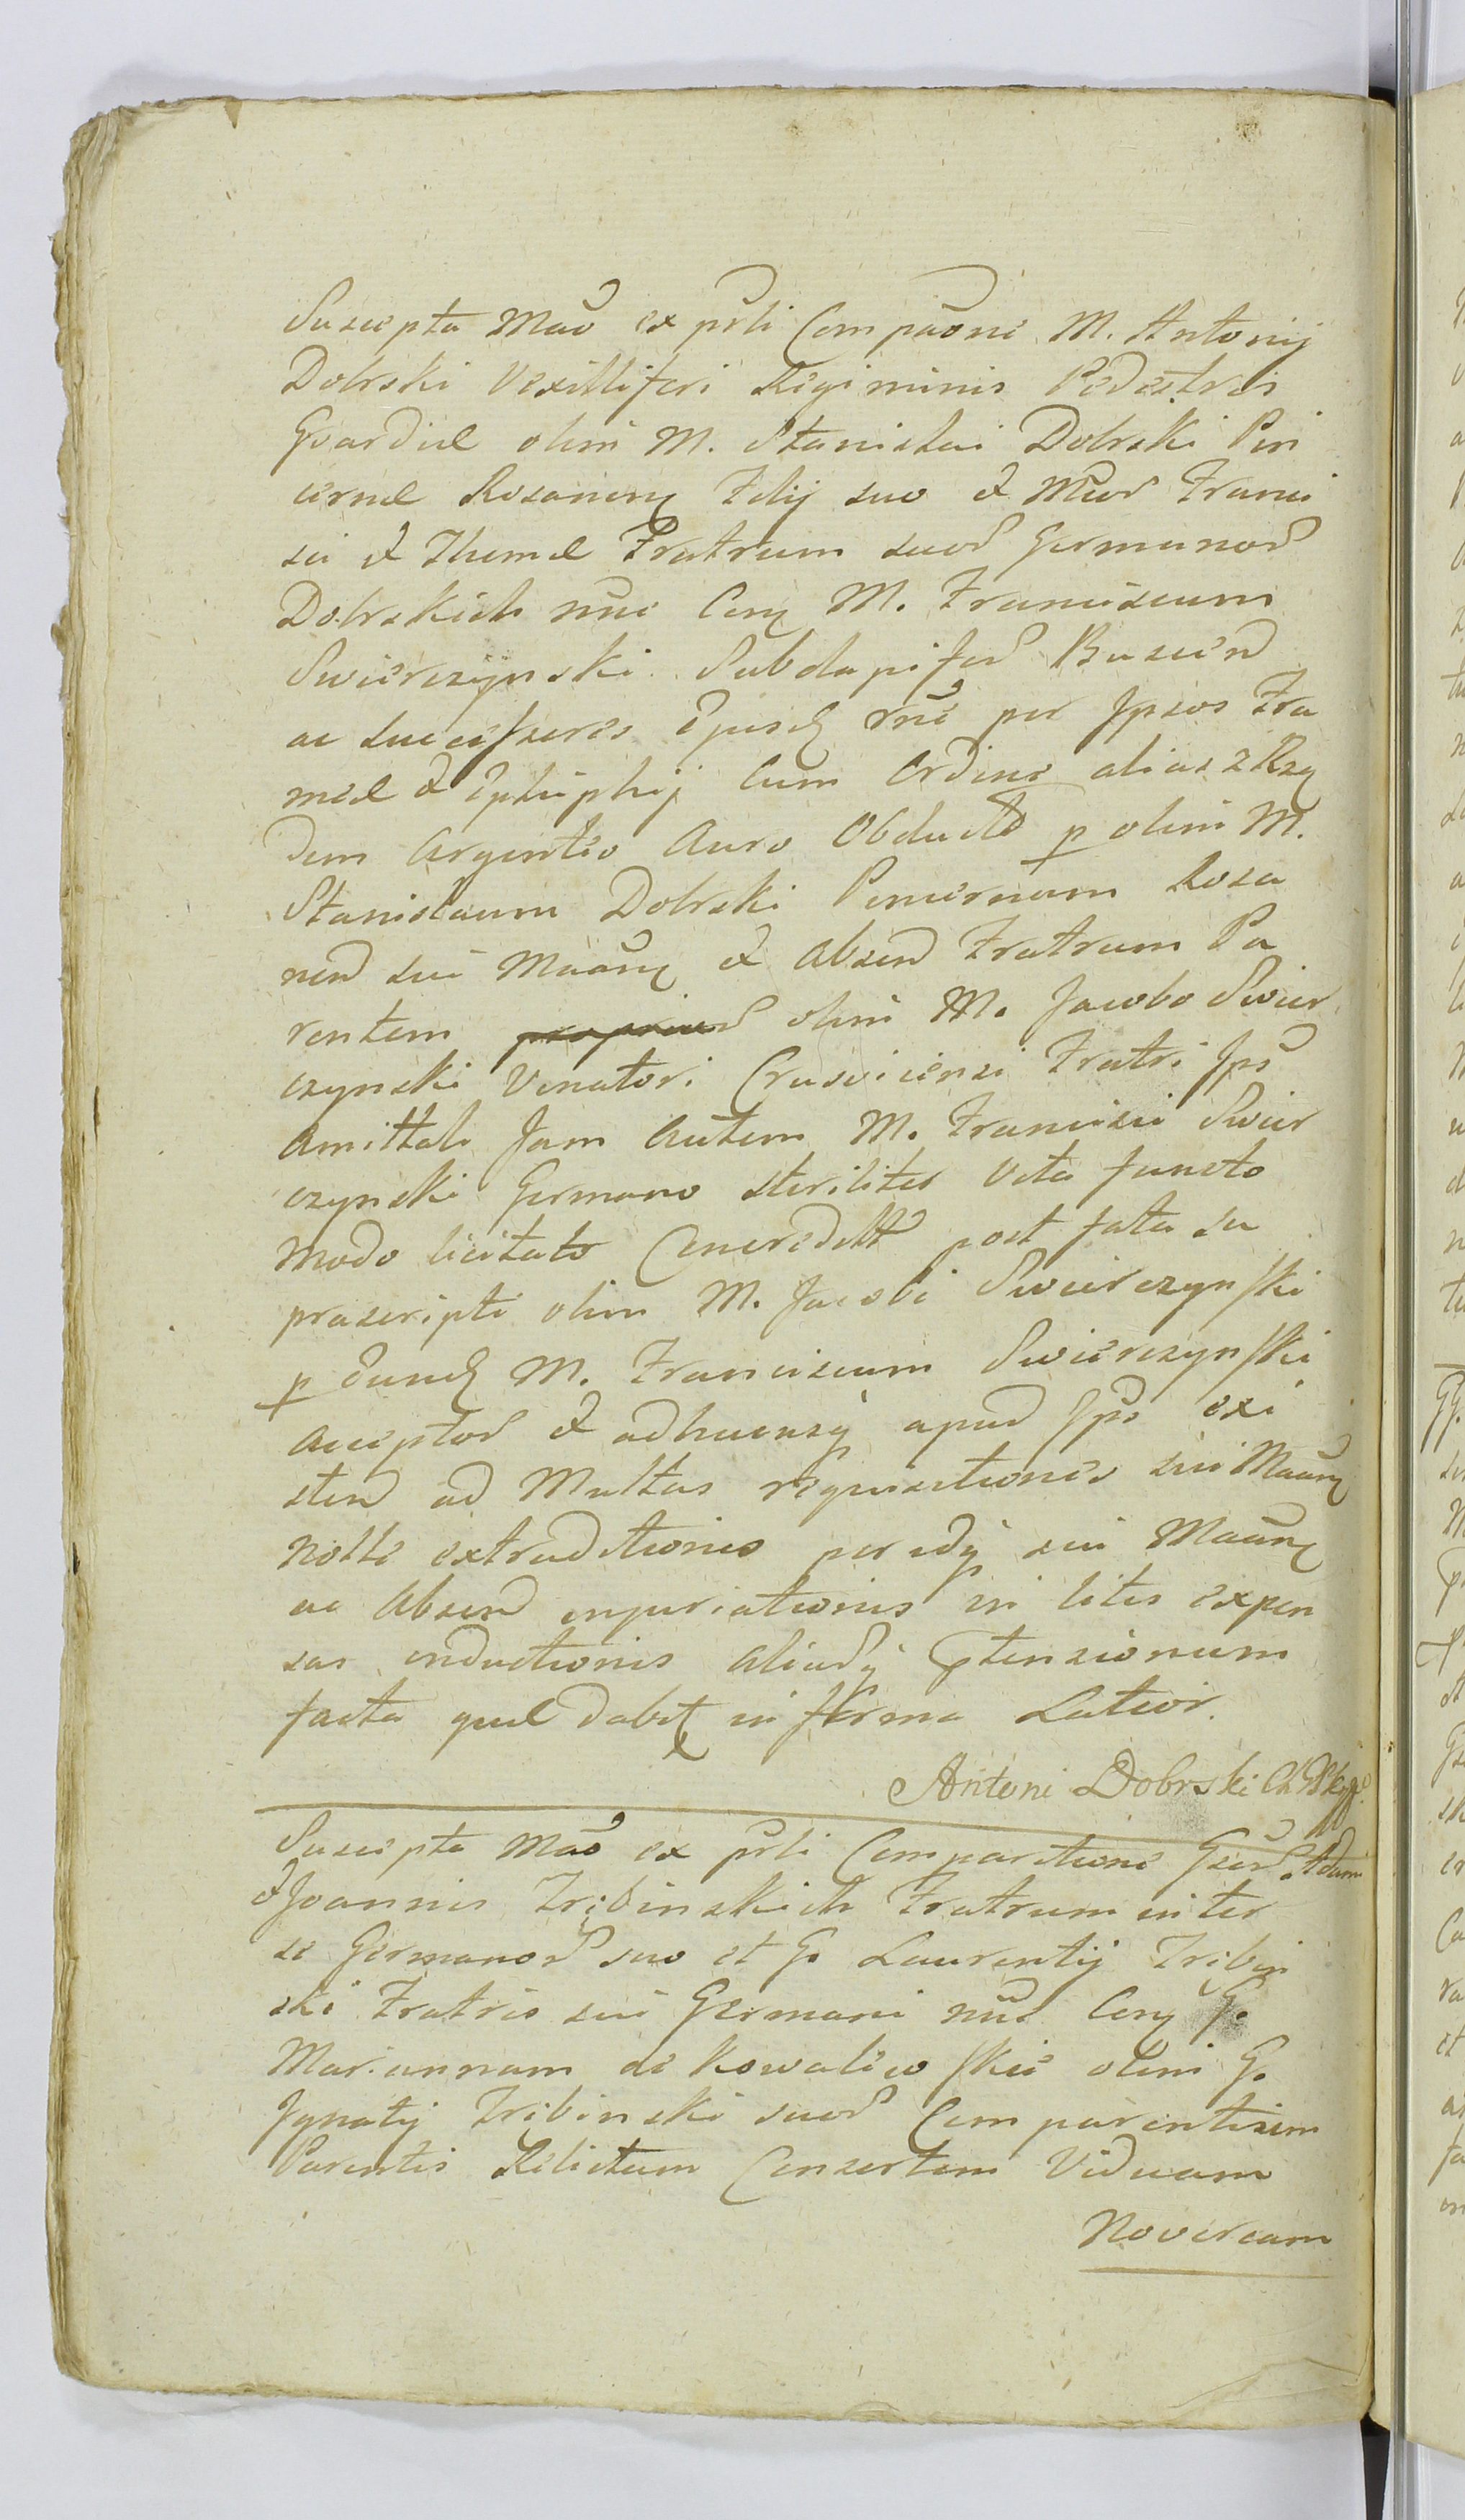 Suscepta Mão ex prŝli Compãone M. Antonij
Dobrski Vexilliferi Regiminis Pedestris
Gvardiæ olim M. Stanislai Dobrski Pin
cernæ Rosanens Filij suo & Mcor Franci
sci & Thomæ Fratrum suor Germanor
Dobrskich nñe Con M. Franciscum
Swierczynski Subdapifer Buscen
ac Successores Ejusd rñe per Ipsos Fra
meæ & Ephiphij cum Ordine alias z Rzę
dem Argenteo Auro Obduct p olim M.
Stanislaum Dobrski Pincernam Rosa
nen sui Mãans & Absen Fratrum Pa
rentem olim M. Jacobo Swier
czynski Venatori Crusviciensi Fratri Ips
Amittali Jam Autem M. Francisci Swier
czynski Germano steriliter Vita functo
Modo licitato Concredit post fata su
prascripti olim M. Jacobi Swierczynski
p Eund M. Franciscum Swierczynski
acceptor & adhucusq apud Ips exi
sten ad Multas requisitiones sui Mãans
nolle extraditionis per idq sui Mãans
ac Absen injuriationis in litis expen
sas inductionis aliarq ptensionum
facta quæ dabit in forma Latior.
Antoni Dobrski
Suscepta Mão ex prŝli Comparitione Gser Adami
& Joannis Trzbinskich Fratrum inter
se Germanor suo et G. Laurentij Trzbin
ski Fratris sui Germani nñe Con G.
Mariannam de Kowalewskie olim G.
Ignatij Trzbinski suor Comparentium
Parentis Relictam Consortem Viduam
Novercam